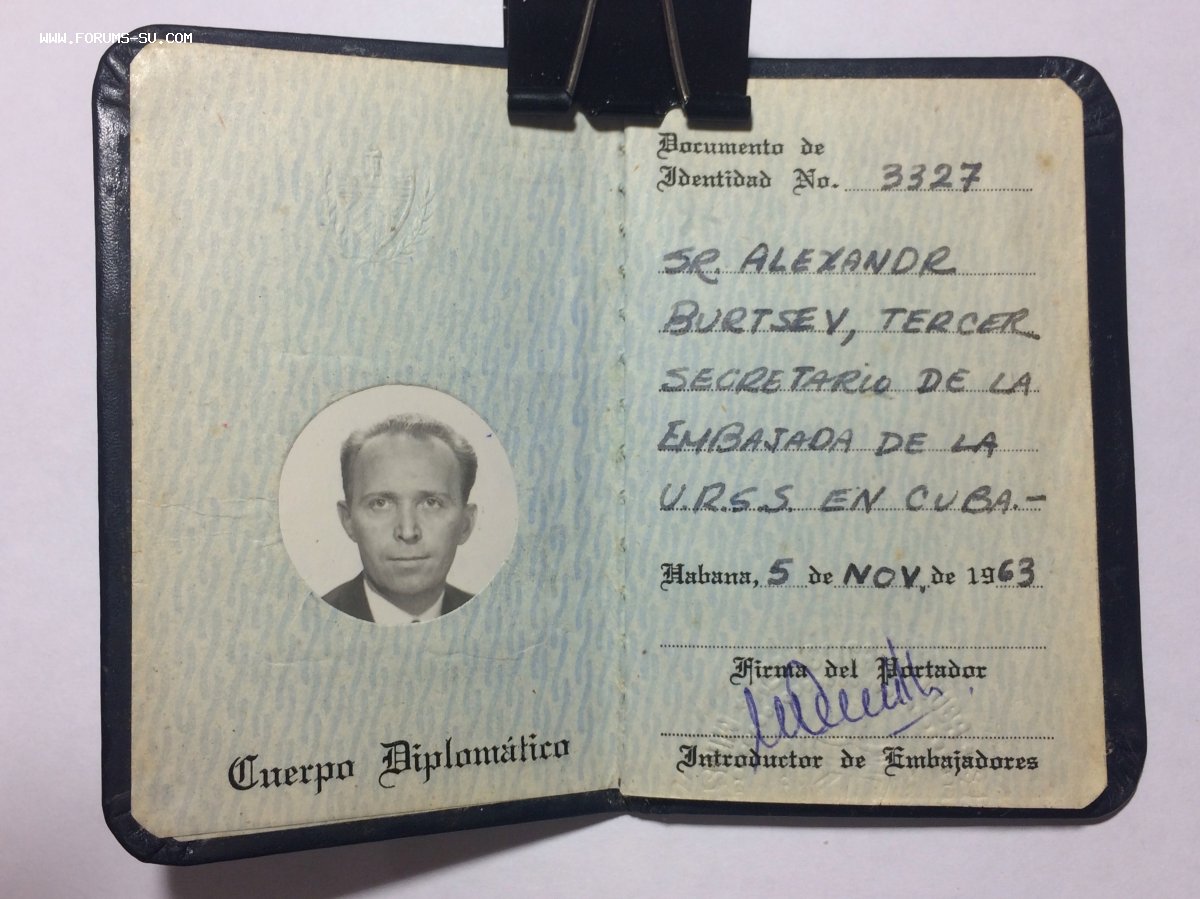 WWW.FORUMS-SU.COM
Cuerpo Diplomático
Documento de
Identidad No. 3327
SR. ALEXANDR
BURTSEV, TERCER
SECRETARIO DE LA
EMBAJADA DE LA
U.R.S.S. EN CUBA.-
Habana, 5 de NOV. de 1963
Firma del Portador
Introductor de Embajadores